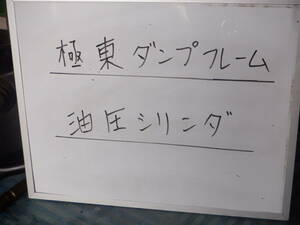 極東ダンプフレーム
油圧シリンダ